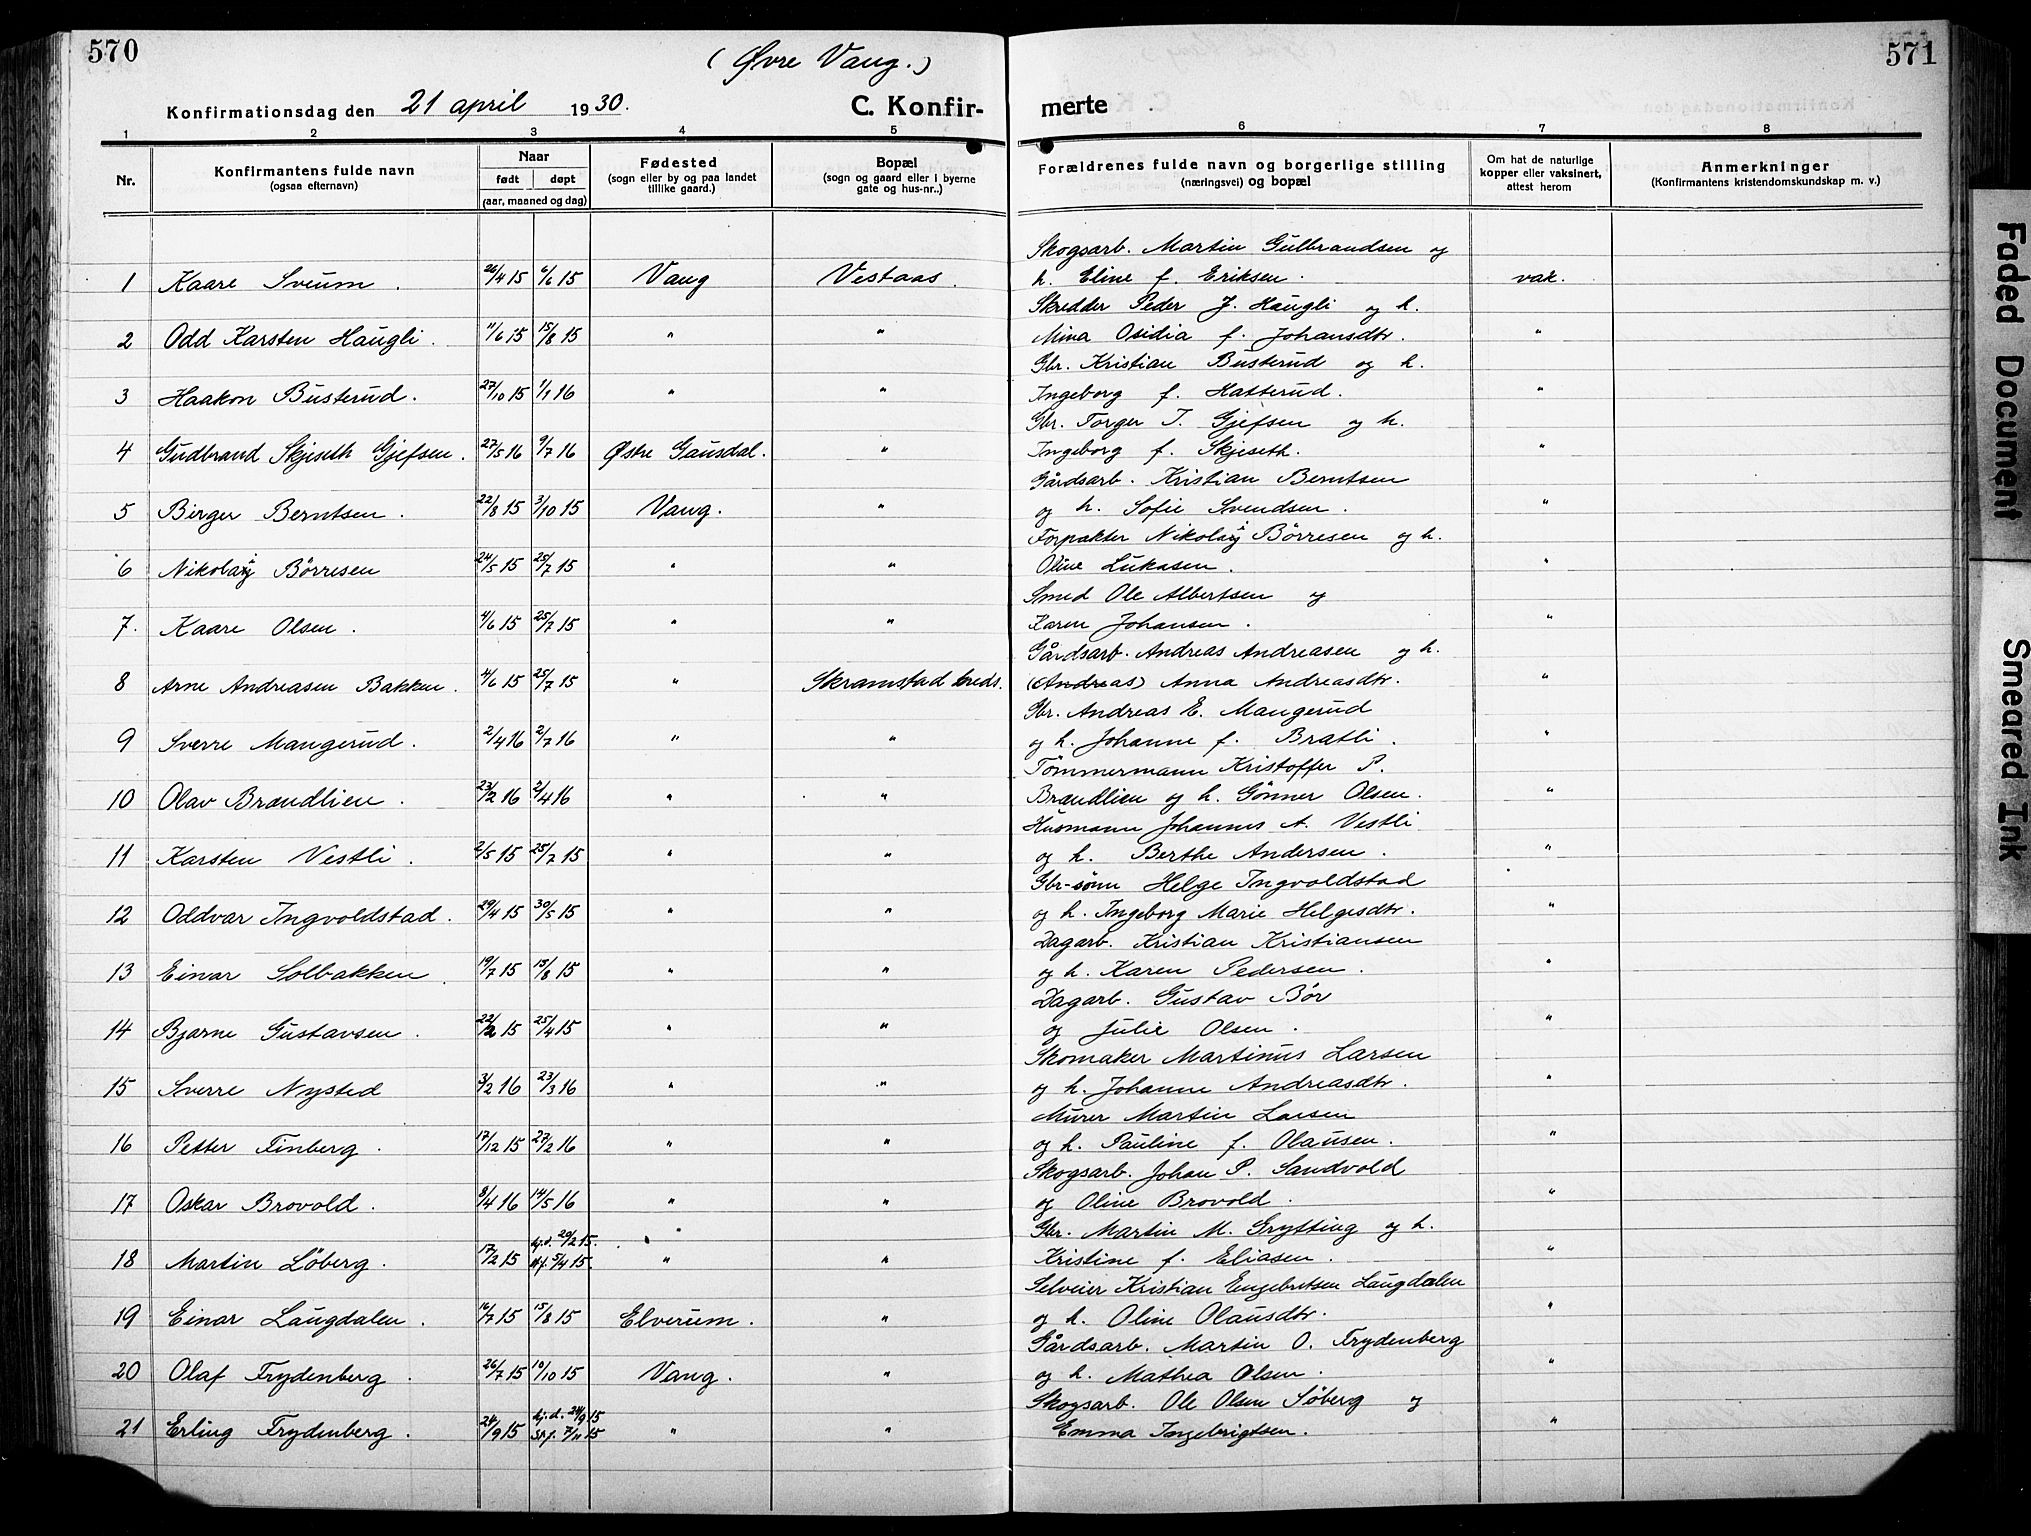 570
(Øvre Vang.)
Konfirmationsdag den 21 april 1930.
C. Konfir-
1 2 3 4 5
Nr.
Konfirmantens fulde navn
(ogsaa efternavn)
Naar
født døpt
(aar, maaned og dag)
Fødested
(sogn eller by og paa landet
tillike gaard.)
Bopæl
(sogn og gaard eller i byerne
gate og hus-nr..)
1 Kaare Sveum. 26/4 15 6/6 15 Vang Vestaas.
2 Odd Karsten Haugli. 11/6 15 15/8 15 " "
3 Haakon Busterud. 27/10 15 1/1 16 " "
4 Gudbrand Skjeseth Gjefsen. 27/5 16 9/7 16 Østre Gausdal. "
5 Birger Berntsen. 22/8 15 3/10 15 Vang. "
6 Nikolaij Börresen 24/5 15 25/7 15 " "
7. Kaare Olsen. 4/6 15 25/7 15 " "
8 Arne Andreasen Bakken. 4/6 15 25/7 15 " Skramstad kreds.
9 Sverre Mangerud. 2/4 16 2/7 16 " "
10 Olav Brændlien. 23/2 16 2/4 16 " "
11 Karsten Vestli. 2/5 15 25/7 15 " "
12 Oddvar Ingvoldstad. 29/4 15 30/5 15 " "
13 Einar Solbakken 19/7 15 15/8 15 " "
14 Bjarne Gustavsen. 22/2 15 25/4 15 " "
15 Sverre Nysted 3/2 16 23/3 16 " "
16 Petter Finberg. 17/12 15 27/2 16 " "
17 Oskar Brovold. 9/4 16 14/5 16 " "
18 Martin Löberg. 17/2 15 hj.d. 20/2 15. st.f. 5/4 15. " "
19 Einar Laugdalen. 16/7 15 15/8 15 Elverum. "
20 Olaf Frydenberg. 26/7 15 10/10 15 Vang. "
21 Erling Frydenberg. 24/9 15 hj.d. 24/9 15 st.f. 7/11 15 " "
571
merte
6 7 8
Forældrenes fulde navn og borgerlige stilling
(næringsvei) og bopæl
Om hat de naturlige
kopper eller vaksinert,
attest herom
Anmerkninger
(Konfirmantens kristendomskundskap m. v.)
Skogsarb. Martin Gulbrandsen og
h. Eline f. Eriksen. vak.
Skredder Peder J. Haugli og h.
Mina Osidia f. Johansdtr. "
Gbr. Kristian Busterud og h.
Ingeborg f. Hatterud. "
Gbr. Torger T. Gjefsen og h.
Ingeborg f. Skjeseth. "
Gårdsarb. Kristian Berntsen
og h. Sofie Svendsen. "
Forpakter Nikolaij Börresen og h.
Oline Lukasen. "
Smed Ole Albertsen og
Karen Johansen. "
Gårdsarb. Andreas Andreasen og h.
(Andreas) Anna Andreasdtr. "
Gbr. Andreas E. Mangerud
og h. Johanne f. Bratli. "
Tömmermann Kristoffer P.
Brændlien og h. Gönner Olsen. "
Husmann Johannes A. Vestli
og h. Berthe Andersen. "
Gbr-sönn Helge Ingvoldstad
og h. Ingeborg Marie Helgesdtr. "
Dagarb. Kristian Kristiansen
og h. Karen Pedersen. "
Dagarb. Gustav Bör
og Julie Olsen. "
Skomaker Martinus Larsen
og h. Johanne Andreasdtr. "
Murer Martin Larsen
og h. Pauline f. Olausen. "
Skogsarb. Johan P. Sandvold
og Oline Brovold. "
Gbr. Martin M. Grytting og h.
Kristine f. Eliasen. "
Selveier Kristian Engebretsen Laugdalen
og h. Oline Olausdtr. "
Gårdsarb. Martin O. Frydenberg
og h. Mathea Olsen. "
Skogsarb. Ole Olsen Söberg og
Emma Ingebrigtsen. "
Faded Document
Smeared Ink